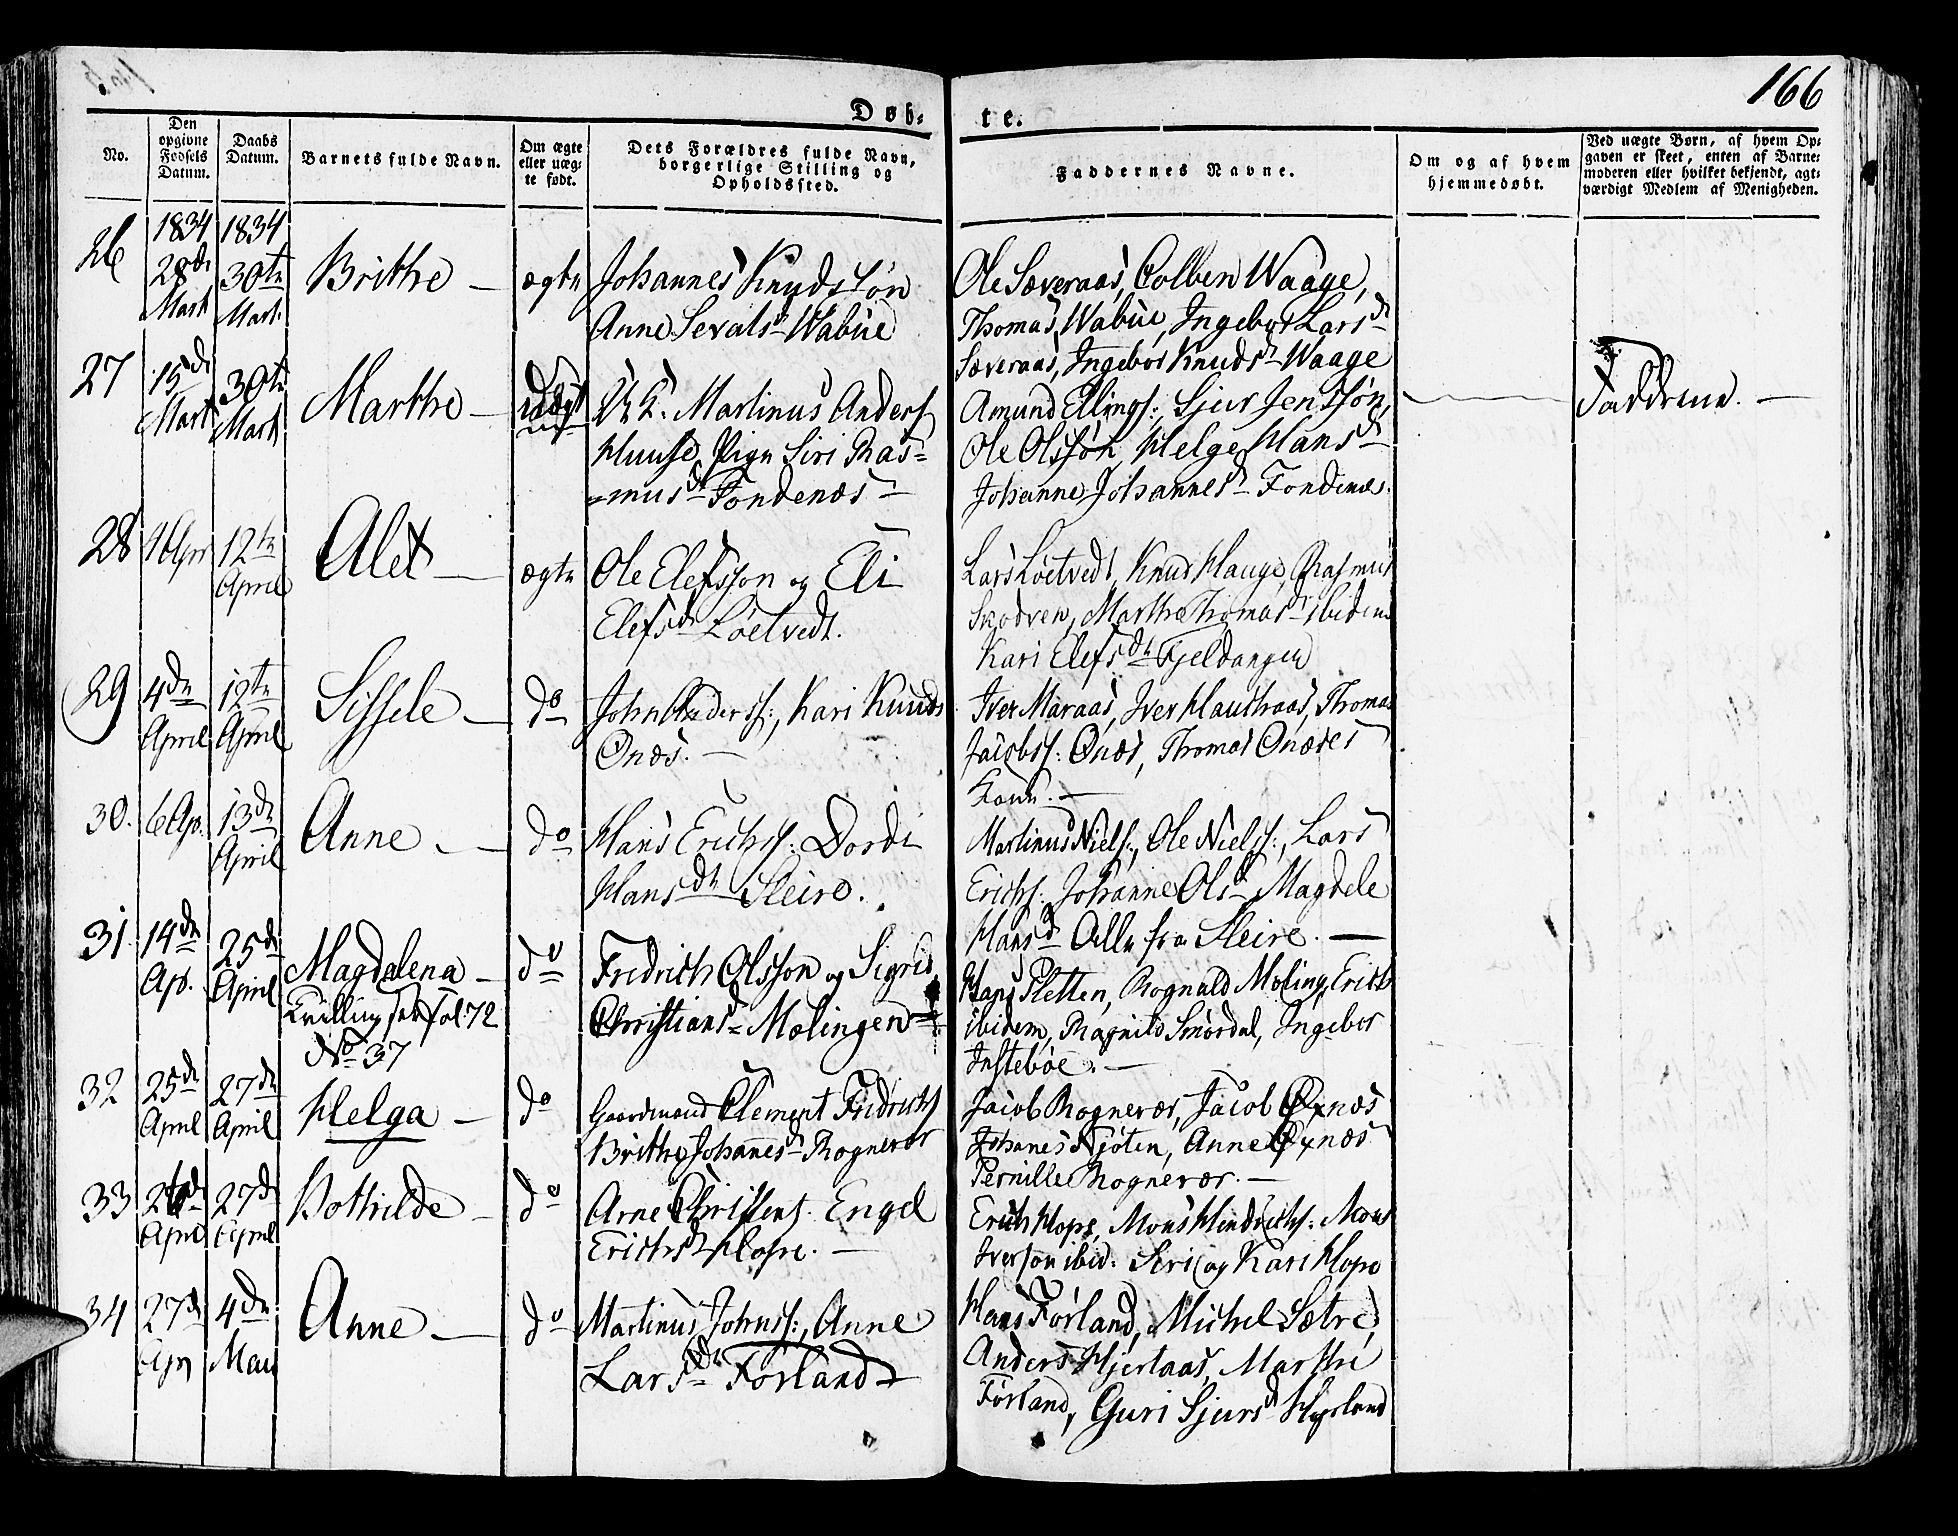 166
Døb-
te.
No.
Den opgivne Fødsels Datum.
Daabs Datum.
Barnets fulde Navn.
Om ægte eller uæg- te født.
Dets Forældres fulde Navn, borgerlige Stilling og Opholdssted.
Faddernes Navne.
Om og af hvem hjemmedøbt.
Ved uægte Børn, af hvem Op- gaven er skeet, enten af Barne- moderen eller hvilket bekjendt, agt- værdigt Medlem af Menigheden.
1834 1834
26 28d Mart 30te Mart. Brithe — ægte
Johannes Knudssøn
Anne Sevalsd Wabüe
Ole Sæveraas, Colben Waage,
Thomas Wabüe, Ingebor Larsd
Sæveraas, Ingebor Knudsd Waage
27 15d Mart 30te Mart Marthe — uægt
U. K. Martinus Anders
Huuse, Pige Siri Ras-
-musd Fondenæs —
Amund Ellings:, Sjur Jenssøn,
Ole Olssøn, Helge Hansd
Johanne Johannesd Fondenæs.
Fadderne. —
28 Apr 12te April Alet — ægte
Ole Elefsson og Eli
Elefsd Løetvedt.
Lars Løetvedt, Knud Hauge, Rasmus
Skodven, Marthe Thomasd ibidem
Kari Elefsdt Fjeldangen
29 4de April 12te April Sissele — do
John Anderss:, Kari Knuds
Onæs. —
Iver Maraas, Iver Haukaas, Thomas
Jacobss: Onæs, Thomas Onæses
Kone. —
30. 6 Ap. 13de April Anne — do
Hans Erichss: Dordi
Hansdt Sleire.
Martinus Niels:, Ole Nielss:, Lars
Erichs: Johanne Olsd Magdele
Hansd Alle fra Sleire. —
31. 14de Ap. 25de April Magdalena — do
Tvilling see fol. 72
No 37
Fredrich Olsson og Sigrid
Christiansd Mølingen
Hans Sletten, Rognald Møling, Erich
ibidem, Ragnild Smørdal, Ingebor
Instebøe. —
32 25de April 27de April Helga — do
Gaardmand Clement Fredrichs
Brithe Johannesd Rognevær
Jacob Rognevær, Jacob Øxnæs
Johanes Njøten, Anne Øxnæs
Pernille Rognevær. —
33 26de April 27d April Bothilde — do
Arne Christens. Engel
Erichsd Hope. —
Erich Hope, Mons Hindrichs: Mons
Iverson ibid: Siri og Kari Hope
34 27d Apr 4de Mai Anne — do
Martinus Johnss:, Anne
Larsd Førland
Hans Førland, Michel Sætre,
Anders Hjertaas, Marthe
Førland, Guri Sjursd Hopland